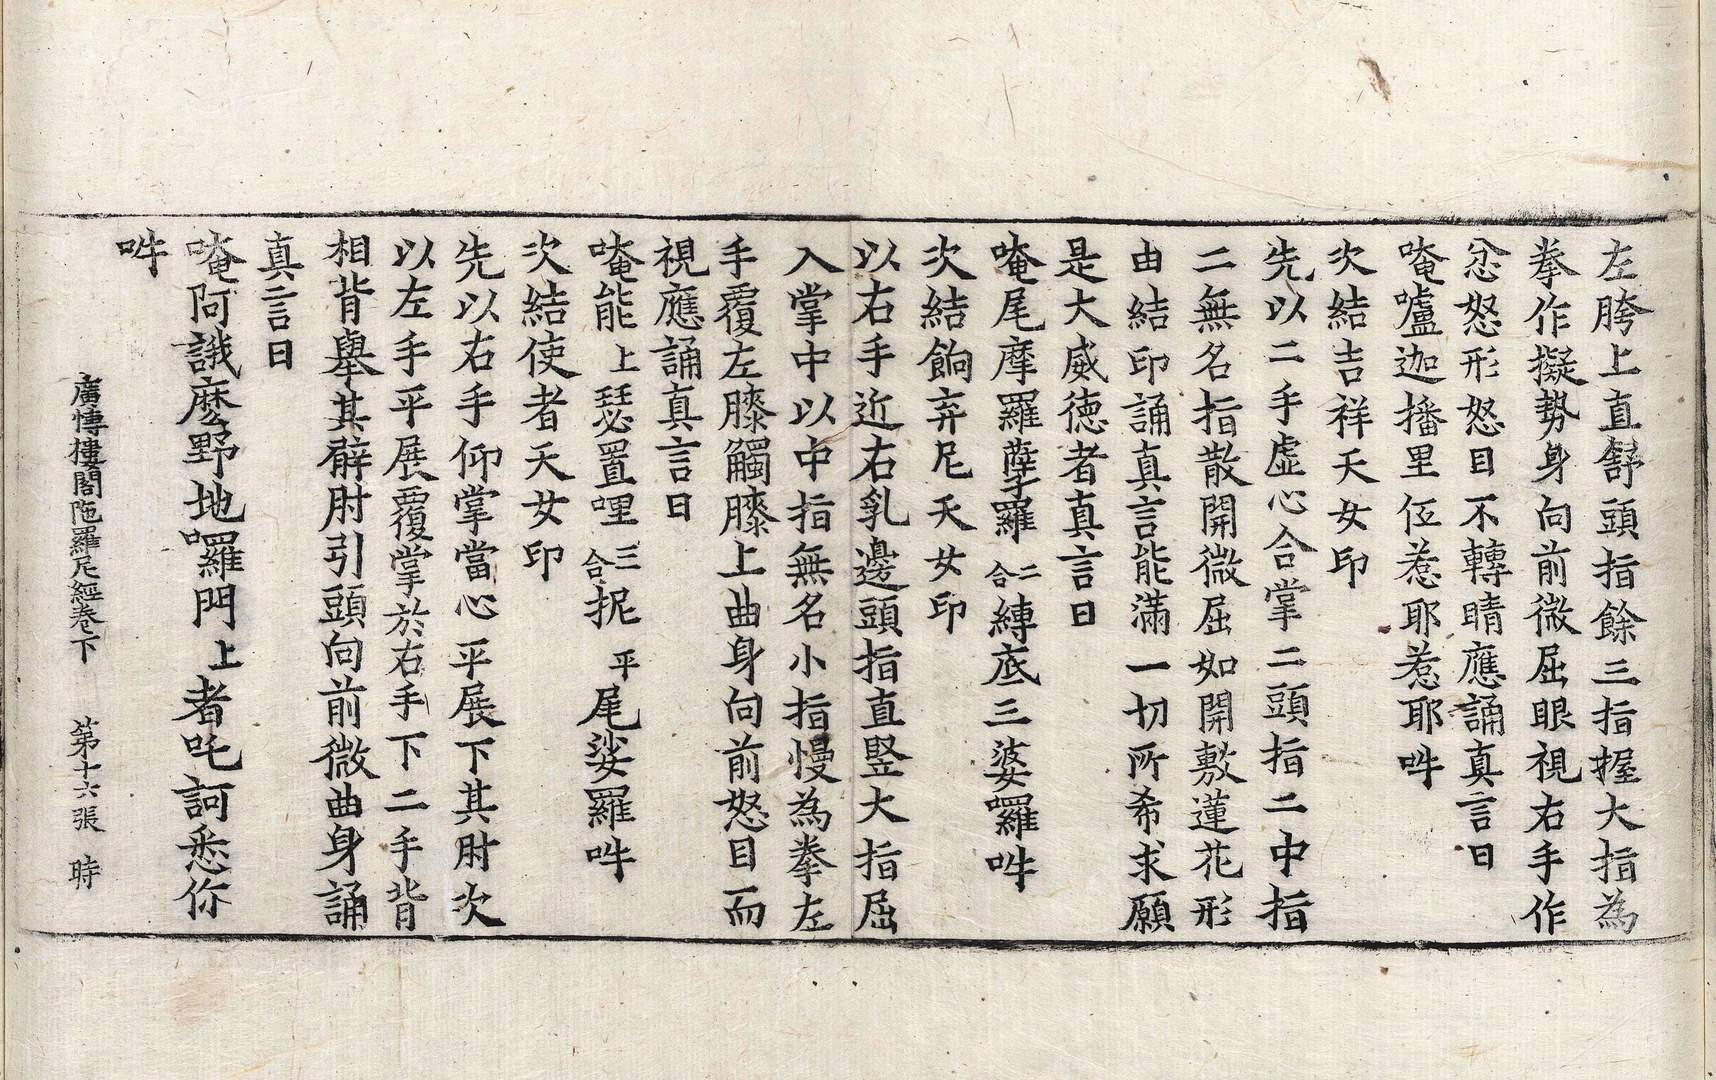 左胯上直舒頭指餘三指握大指為
拳作擬勢身向前微屈眼視右手作
忿怒形怒目不轉睛應誦真言曰
唵嚧迦播里伍惹耶惹耶吽
次結吉祥天女印
先以二手虛心合掌二頭指二中指
二無名指散開微屈如開敷蓮花形
由結印誦真言能滿一切所希求願
是大威德者真言曰
唵尾摩羅孽羅二合縛底三婆囉吽
次結餉弃尼天女印
以右手近右乳邊頭指直竪大指屈
入掌中以中指無名小指慢為拳左
手覆左膝觸膝上曲身向前怒目而
視應誦真言曰
唵能上瑟置哩三合抳平尾娑羅吽
次結使者天女印
先以右手仰掌當心平展下其肘次
以左手平展覆掌於右手下二手背
相背舉其臂肘引頭向前微曲身誦
真言曰
唵阿誐麼野地囉門上者吒訶悉你
吽
廣愽樓閣陁羅尼經卷下 第十六張 時